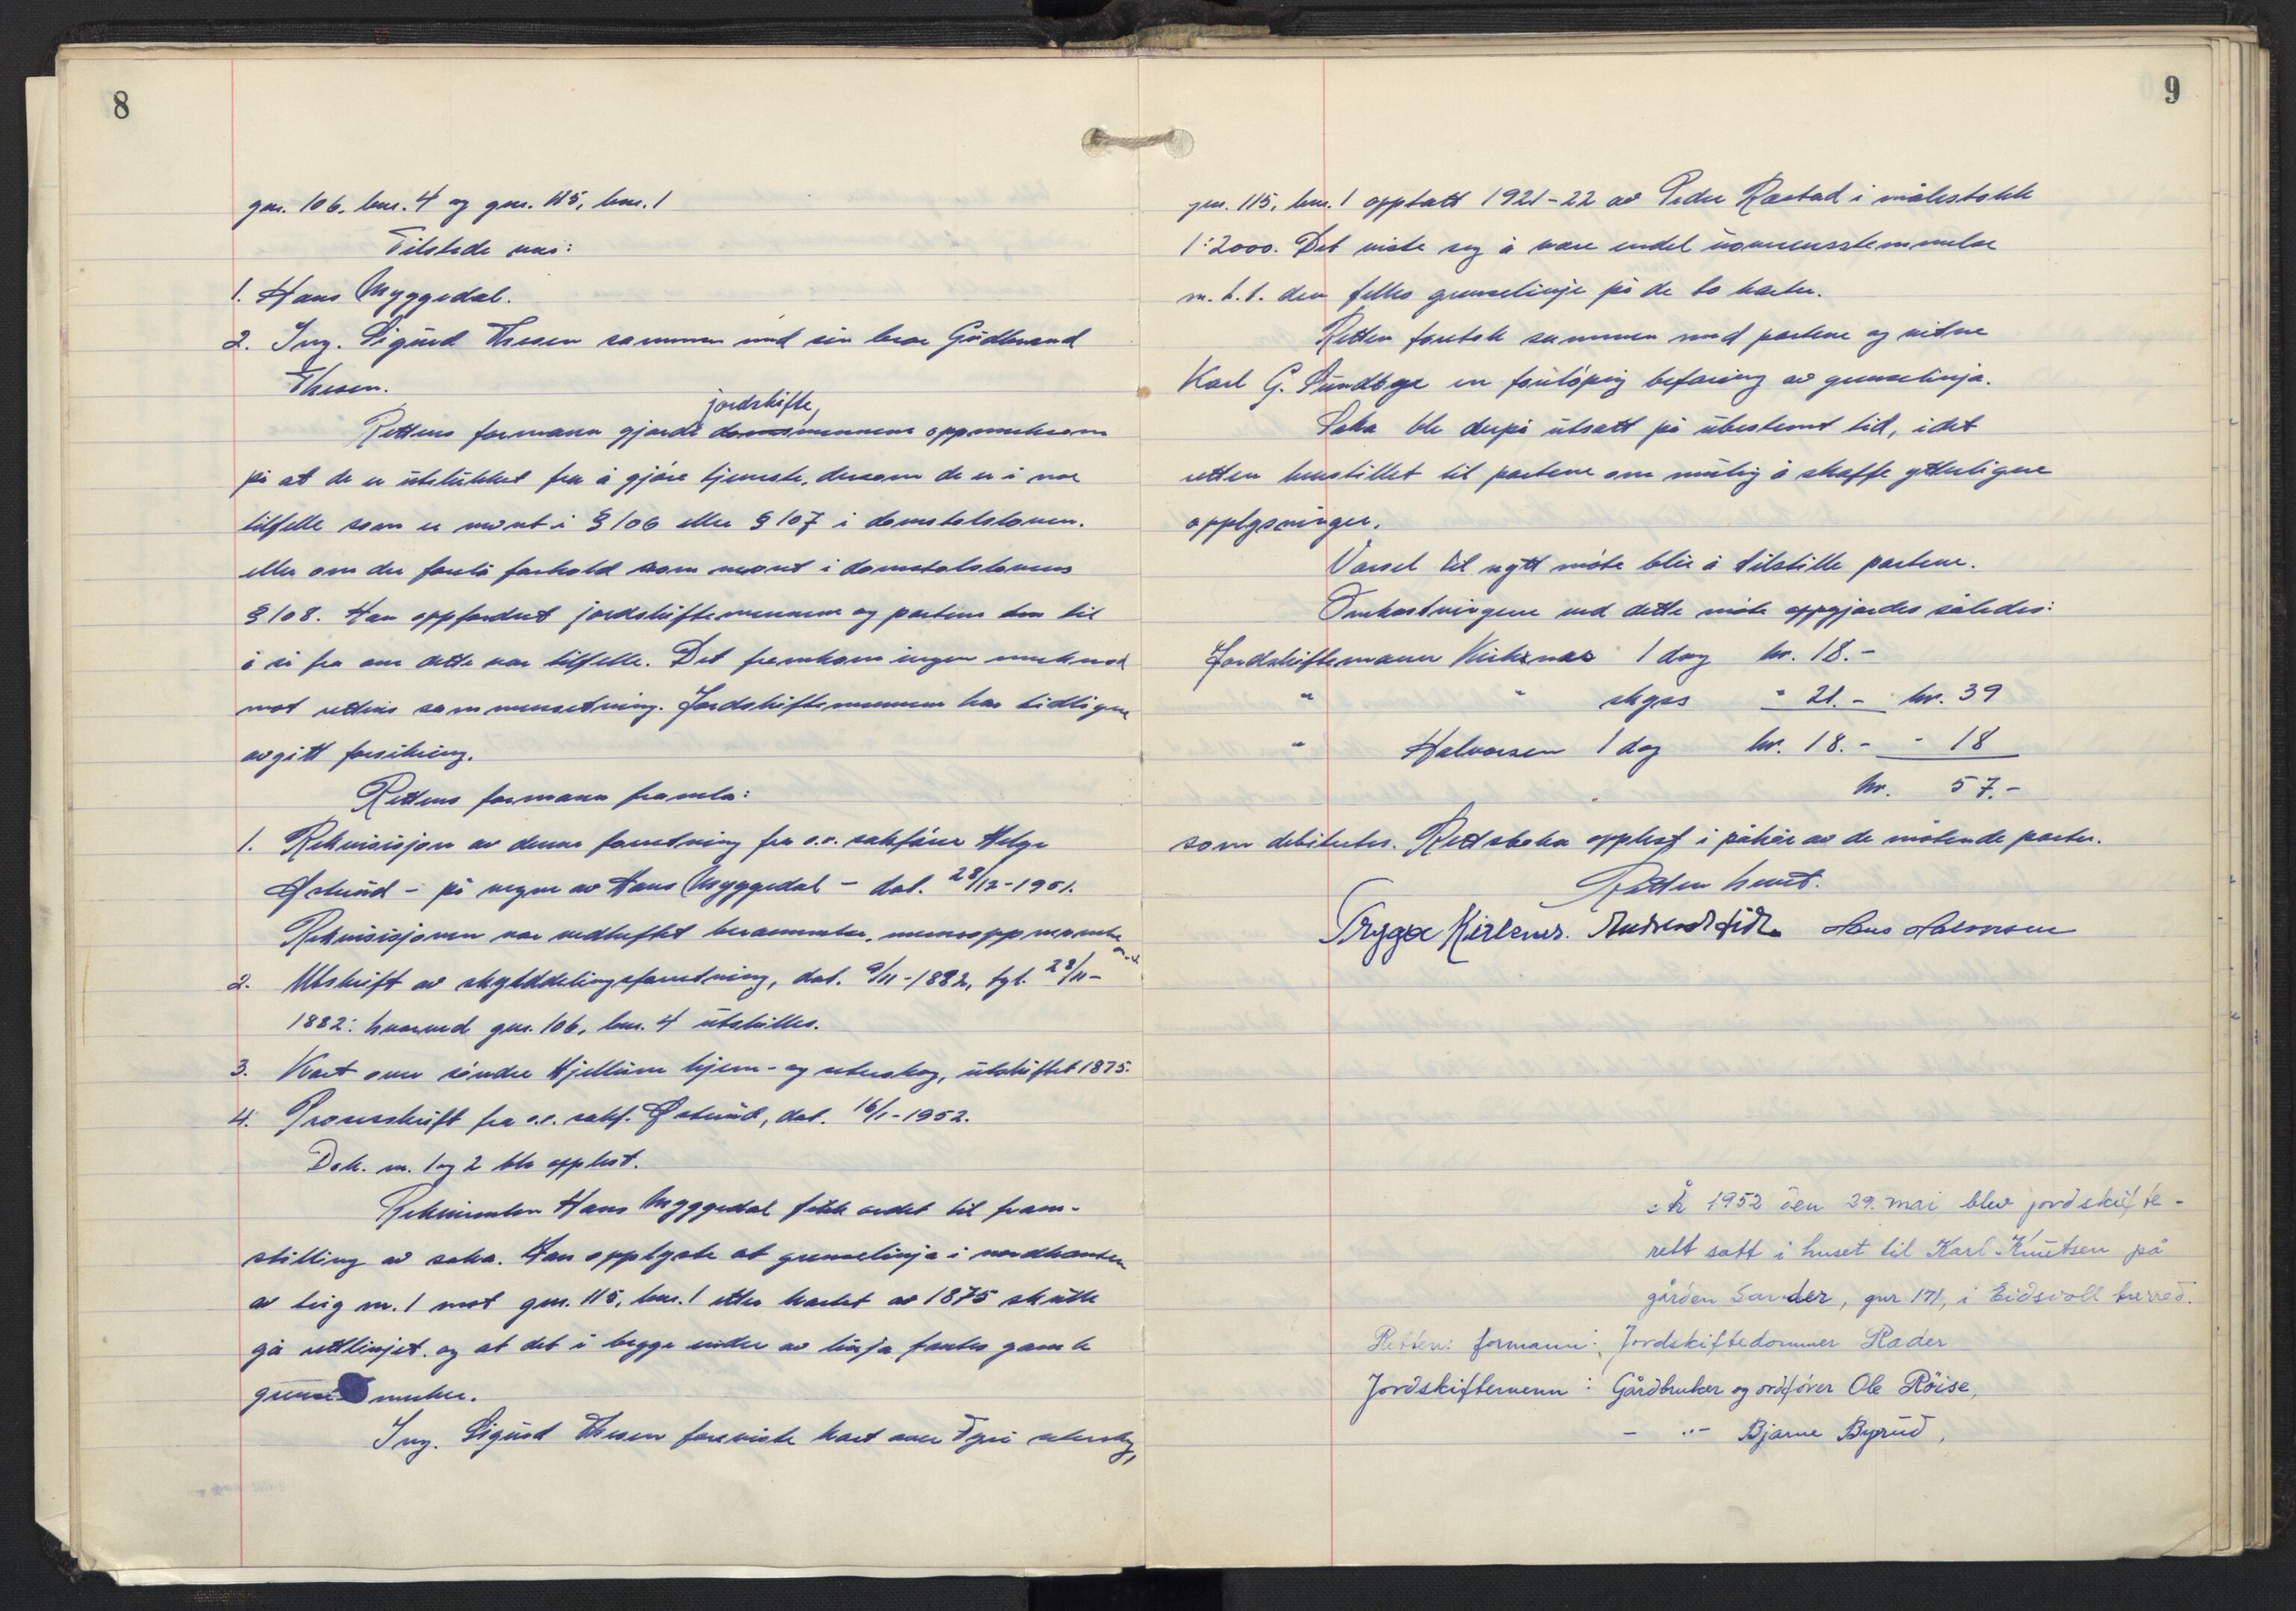 8
gnr. 106, bnr. 4 og gnr. 115, bnr. 1
Tilstede var:
1. Hans Myggedal.
2. Ing. Sigurd Thesen sammen med sin bror Gudbrand
Thesen.
jordskifte,
Rettens formann gjorde domsmennene oppmerksom
på at de er utelukket fra å gjøre tjeneste, dersom de er i noe
tilfelle som er nevnt i § 106 eller § 107 i domstolsloven.
eller om der forelå forhold som nevnt i domstolslovens
§ 108. Han oppfordret jordskiftemennene og partene dem til
å si fra om dette var tilfelle. Det fremkom ingen merknad
mot rettens sammensetning. Jordskiftemennene har tidligere
avgitt forsikring.
Rettens formann framla:
1. Rekvisisjon av denne forretning fra o.r. sakfører Helge
Østerud - på vegne av Hans Myggedal - dat. 28/12-1951.
Rekvisisjonen var vedheftet berammelse, mannsoppnevnelse
m.v.
2. Utskrift av skylddelingsforretning, dat. 9/11-1882, tgl. 28/11-
1882: hvorved gnr. 106, bnr. 4 utskilles.
3. Kart over søndre Hjellum hjem- og uterskog, utskiftet 1875.
4. Prosesskrift fra o.r. sakf. Østerud, dat. 16/1-1952.
Dok. nr. 1 og 2 ble opplest.
Rekvirenten Hans Myggedal fikk ordet til fram-
stilling av saka. Han opplyste at grenselinja i nordkanten
av teig nr. 1 mot gnr. 115, bnr. 1 etter kartet av 1875 skulle
gå rettlinjet, og at det i begge ender av linja fantes gamle
grense merker.
Ing. Sigurd Thesen foreviste kart over uterskog,
9
gnr. 115, bnr. 1 opptatt 1921-22 av Peder Rastad i målestokk
1:2000. Det viste seg å være endel uoverensstemmelse
m.h.t. den felles grenselinje på de to karter.
Retten foretok sammen med partene og vitne
Karl G. Sundbye en foreløpig befaring av grenselinja.
Saka ble derpå utsatt på ubestemt tid, idet
retten henstillet til partene om mulig å skaffe ytterligere
opplysninger.
Varsel til nytt møte blir å tilstille partene.
Omkostningene ved dette møte oppgjordes således:
Jordskiftemann Kirknær 1 dag kr. 18.-
" " skyss " 21.- kr. 39
" Halvorsen 1 dag kr. 18.- - 18
kr. 57.-
som debiteres. Rettsboka opplest i påhør av de møtende parter.
Retten hevet.
Trygve Kirknær. Hans Halvorsen
År 1952 den 29. mai blev jordskifte-
rett satt i huset til Karl Knutsen på
gården Sander, gnr 171, i Eidsvoll herred.
Rettens formann: Jordskiftedommer Rader
Jordskiftemenn: Gårdbruker og ordfører Ole Röise,
- " - Bjarne Byrud,